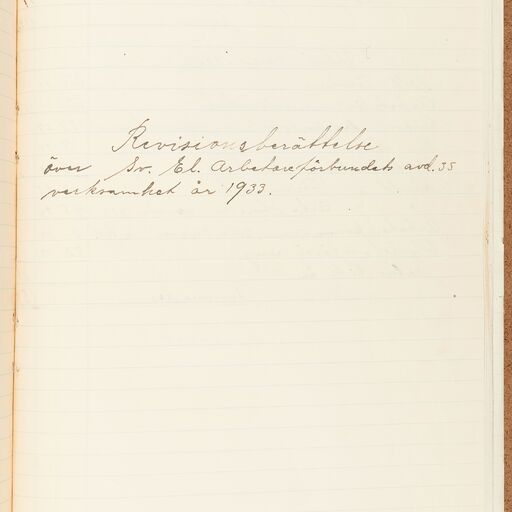 Revisionsberättelse
över Sv. El. Arbetareförbundets avd. 35
verksamhet år 1933.